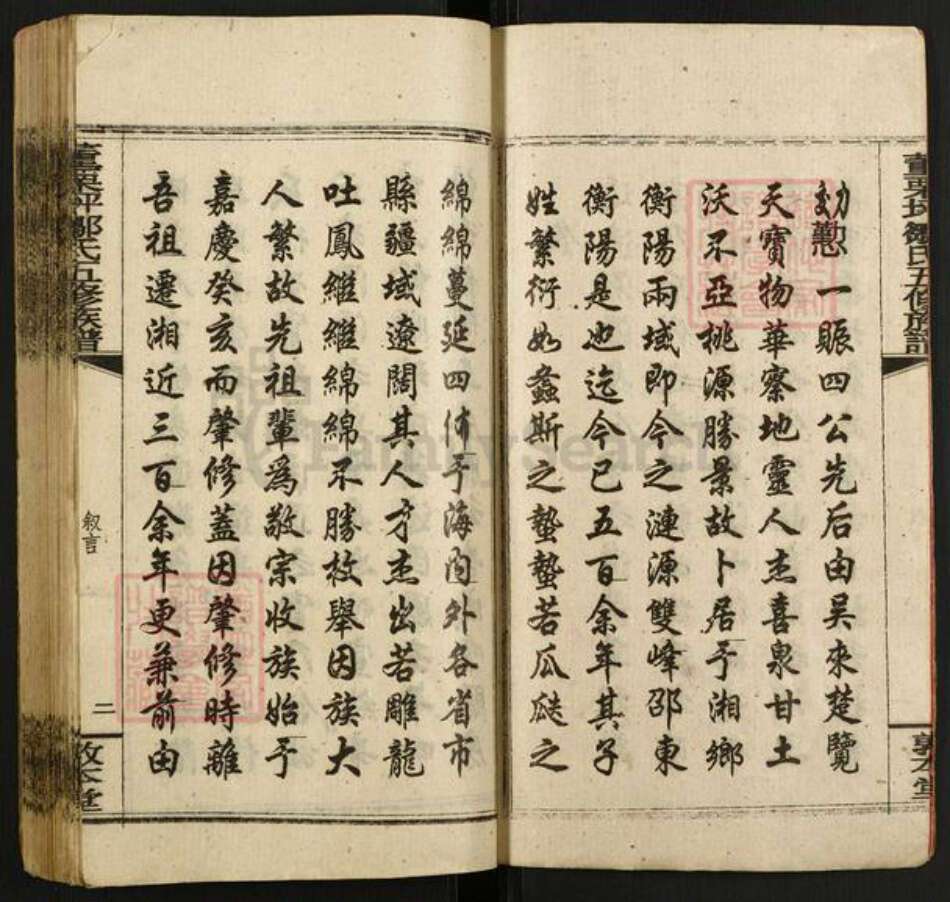 董栗坪鄒氏五修族譜
敦本堂
勳懃一賑四公先后由吴來楚覽
天寶物華察地靈人杰喜泉甘土
沃不亞桃源勝景故卜居于湘鄉
衡陽兩域即今之漣源雙峰邵東
衡陽是也迄今已五百余年其子
姓繁衍如螽斯之蟄蟄若瓜瓞之
綿綿蔓延四佈于海內外各省市
縣疆域遼闊其人才杰出若雕龍
吐鳳繼繼綿綿不勝枚舉因族大
人繁故先祖輩爲敬宗收族始于
嘉慶癸亥而肇修蓋因肇修時離
吾祖遷湘近三百余年更兼前由
董栗坪鄒氏五修族譜
叙言
二
敦本堂
FamilySearch